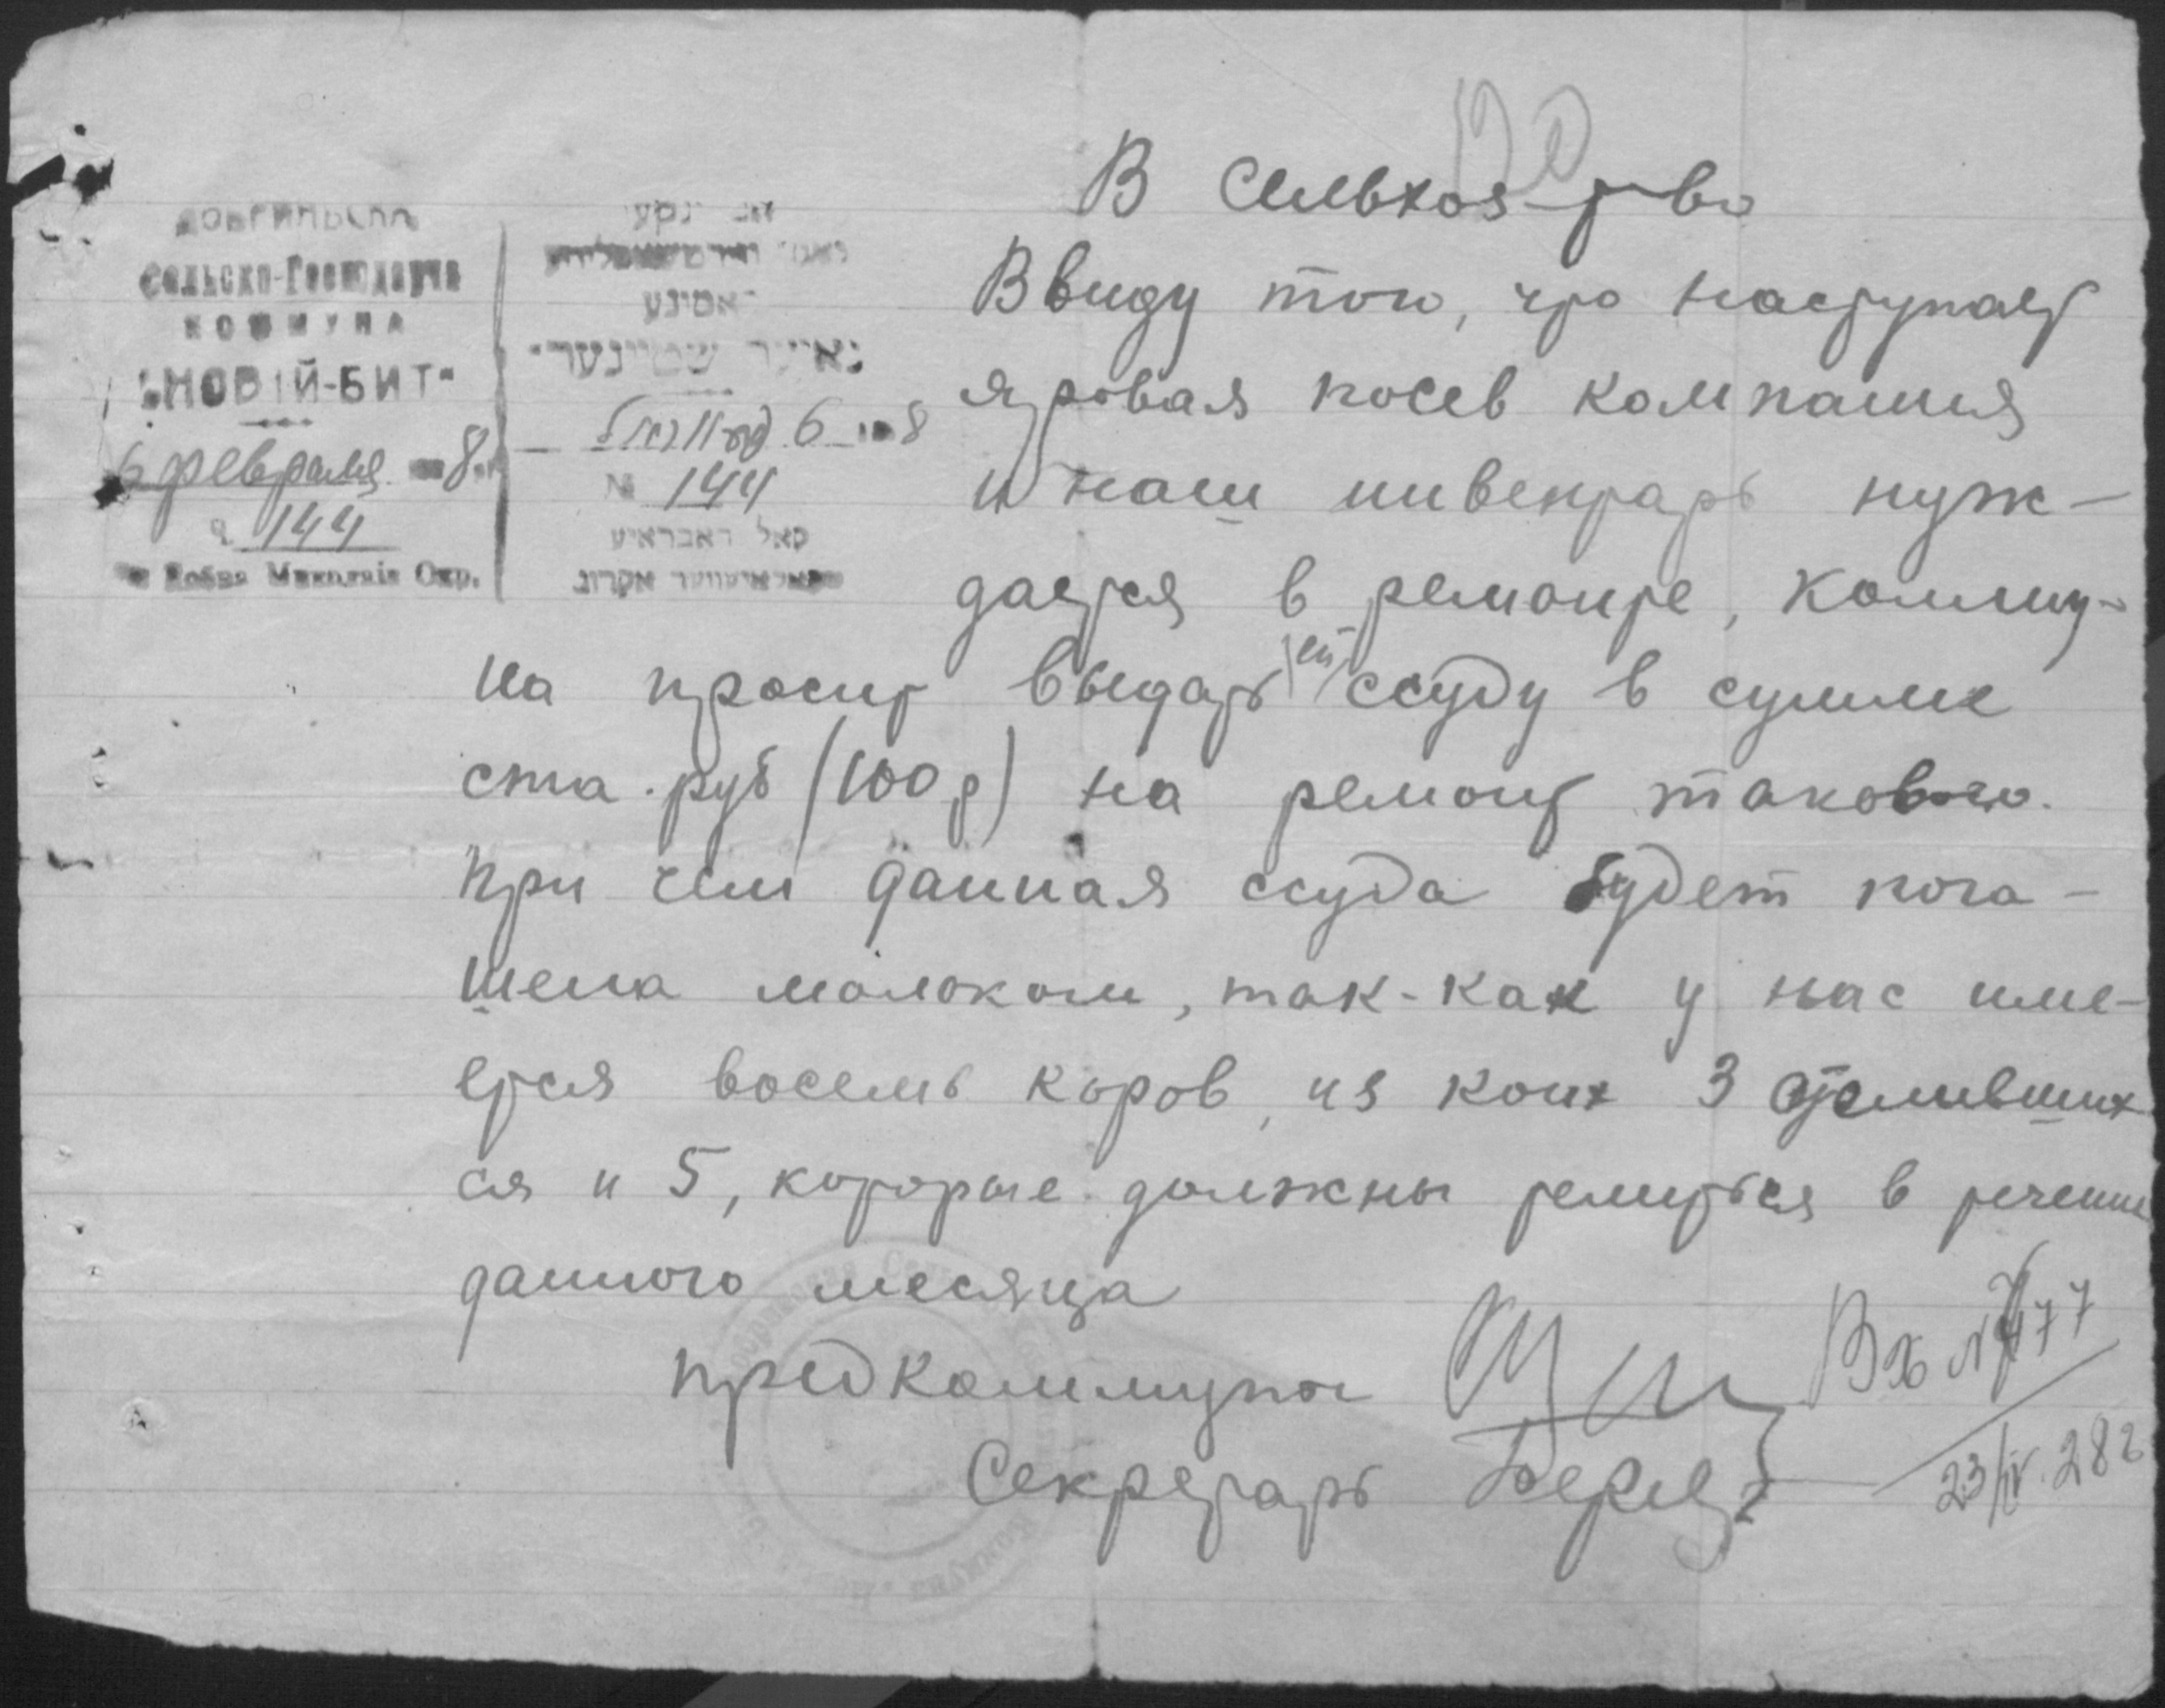 Сельско-Господарча
КОММУНА
„НОВІЙ-БИТ"
6 февраля 8
144
Добра Миколаів Окр.
6 8
№ 144
В Сельхоз т-во
Ввиду того, что наступает
яровая посев компания
и наш инвентарь нуж-
дается в ремонте, Комму-
на просит выдать ей ссуду в сумме
ста руб (100 р) на ремонт такового.
При чем данная ссуда будет пога-
шена молоком, так-как у нас име-
ется восемь коров, из коих 3 отеливших
ся и 5, которые должны телиться в течении
данного месяца
предкоммуны
Секретарь
Вх №
23/IV 28 г